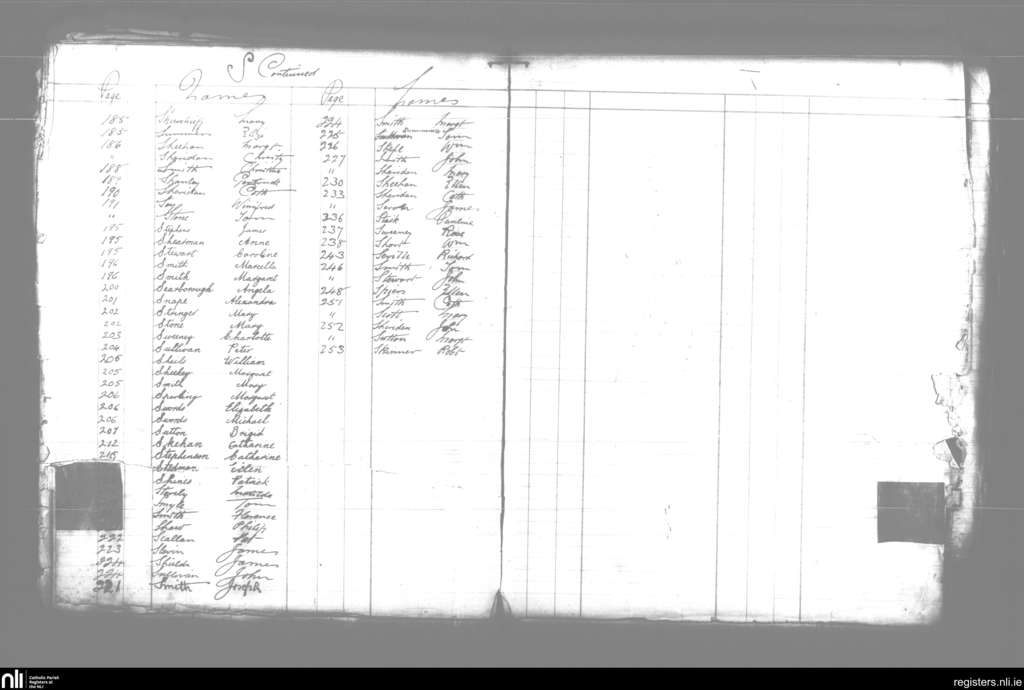 S Continued
Page Names Page Names
185 Mary
185 Summers
186 Sheehan Margt
" Sheridan Christy
188 Smith
Stanley
190 Sheridan Cath
191 Winifred
" Stone
195 Stephens James
195 Shearman Anne
195 Stewart Caroline
196 Smith Marcella
196 Smith Margaret
200 Scarborough Angela
201 Snape Alexandra
202 Stringer Mary
202 Stone Mary
203 Sweeney Charlotte
204 Sullivan Peter
205 Sheils William
205 Sheekey Margaret
205 Smith Mary
206 Sparling Margaret
206 Swords Elizabeth
206 Swords Michael
207 Sutton Brigid
212 Skehan Catharine
215 Stephenson Catherine
Stedman Eileen
Spines Patrick
Smyth Tom
Smith Florence
Shaw Philip
222 Scallan Pat
223 Slevin James
224 Shields James
224 Sullivan John
221 Smith Joseph
224 Smith Margt
225 Sullivan
226 Wm
227 Smith John
" Sheridan Mary
230 Sheehan Ellen
233 Sheridan Cath
" James
236 Stack Pauline
237 Sweeney Rose
238 Short Wm
243 Richard
246 Smith Tom
" Stewart John
248 Spiers Ellen
251 Smyth Cath
" Scott Mary
252 Sheridan John
" Sutton Margt
253 Skinner Robt
nli Catholic Parish Registers at the NLI
registers.nli.ie